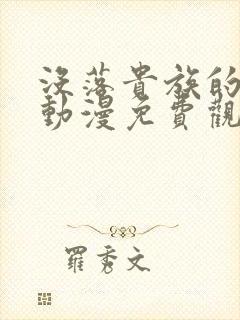 沒落貴族的
動漫免費觀
羅秀文